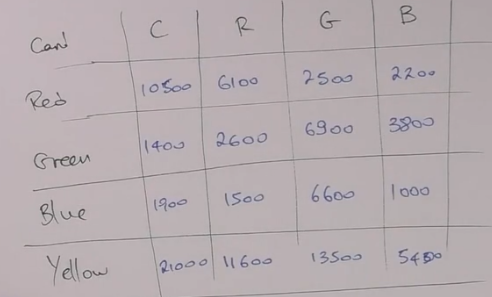 Card C R G B
Red 10500 6100 2500 2200
Green 1400 2600 6900 3800
Blue 1900 1500 6600 1000
Yellow 21000 11600 13500 5400